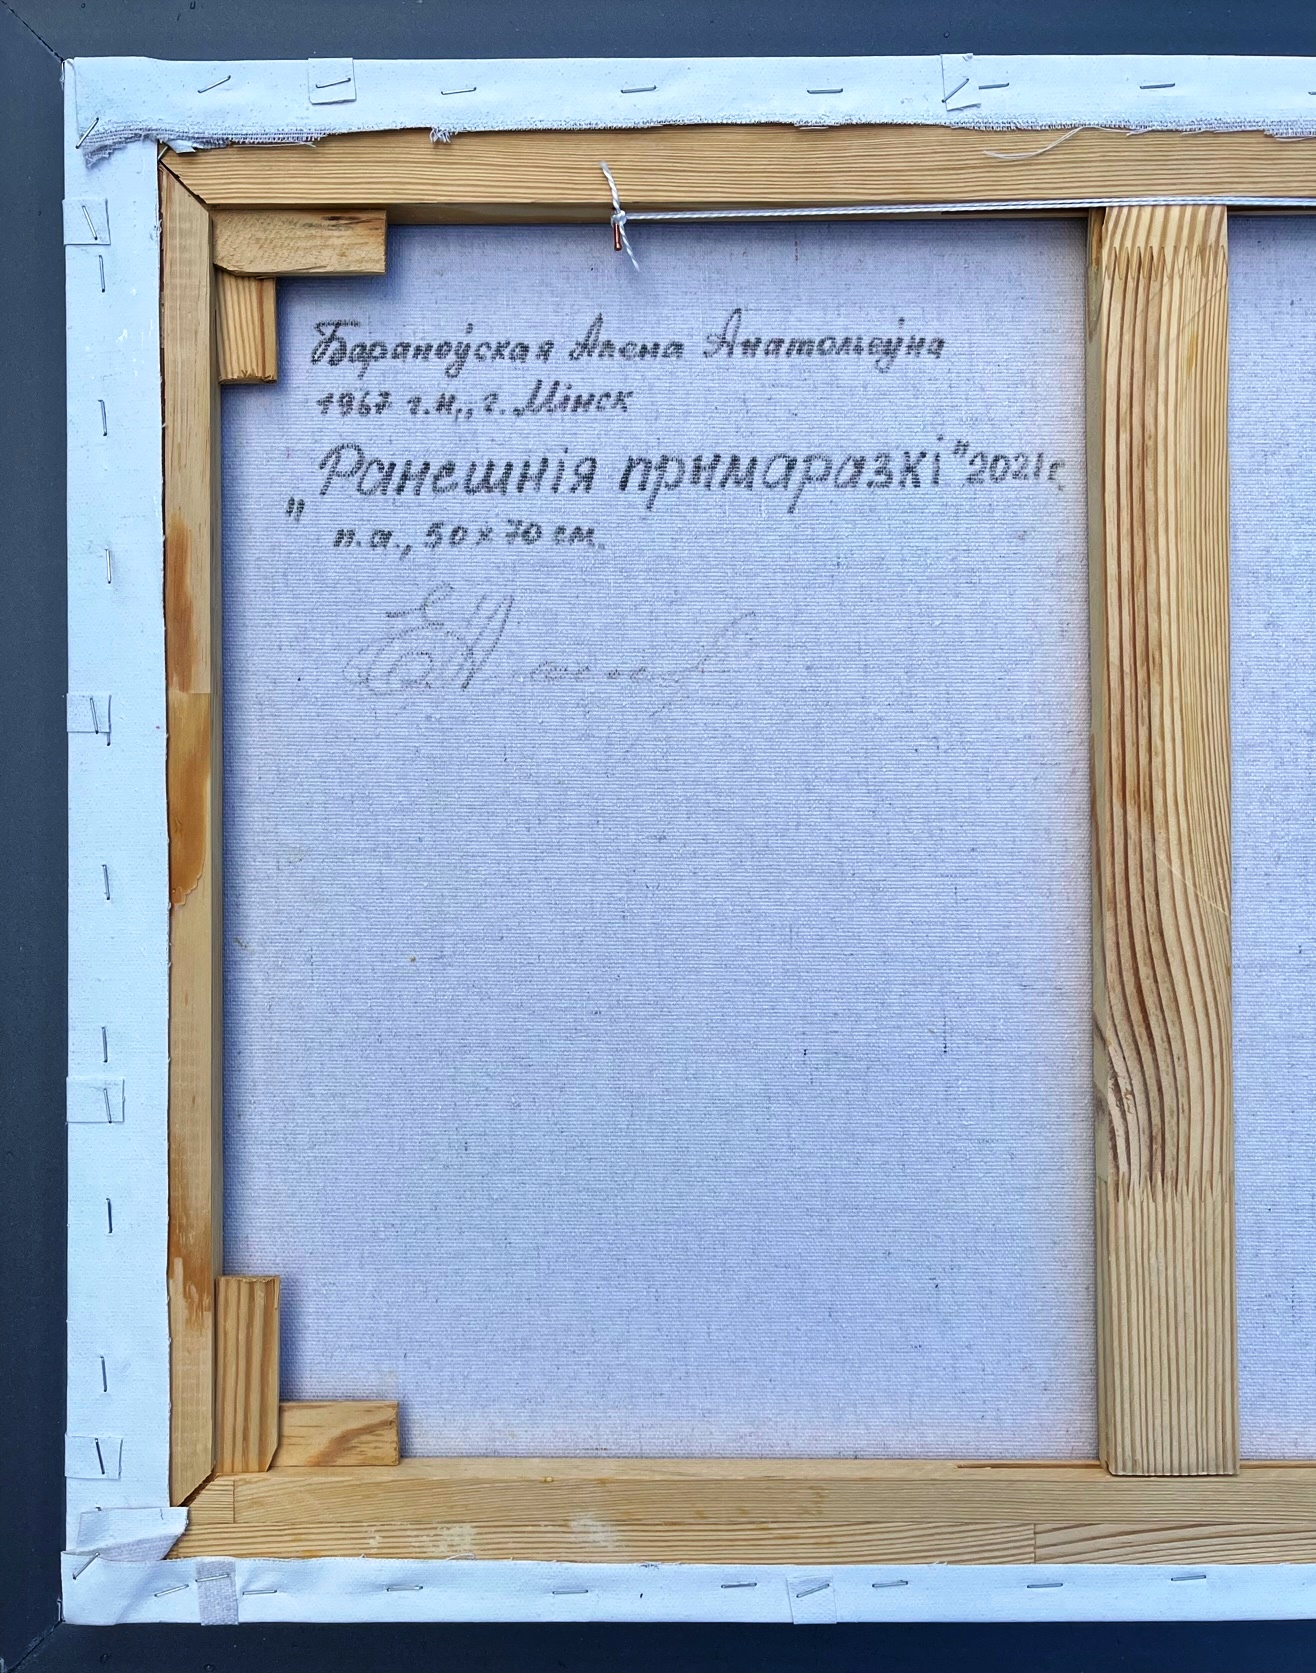 Бараноўская Алена Анатольеўна
1967 г.н., г. Мінск
„Ранешнія прымаразкі" 2021г.
п.а., 50 х 70 см.